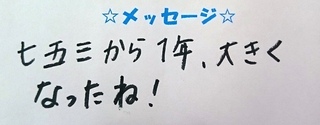 ☆メッセージ☆
七五三から1年、大きく
なったね!